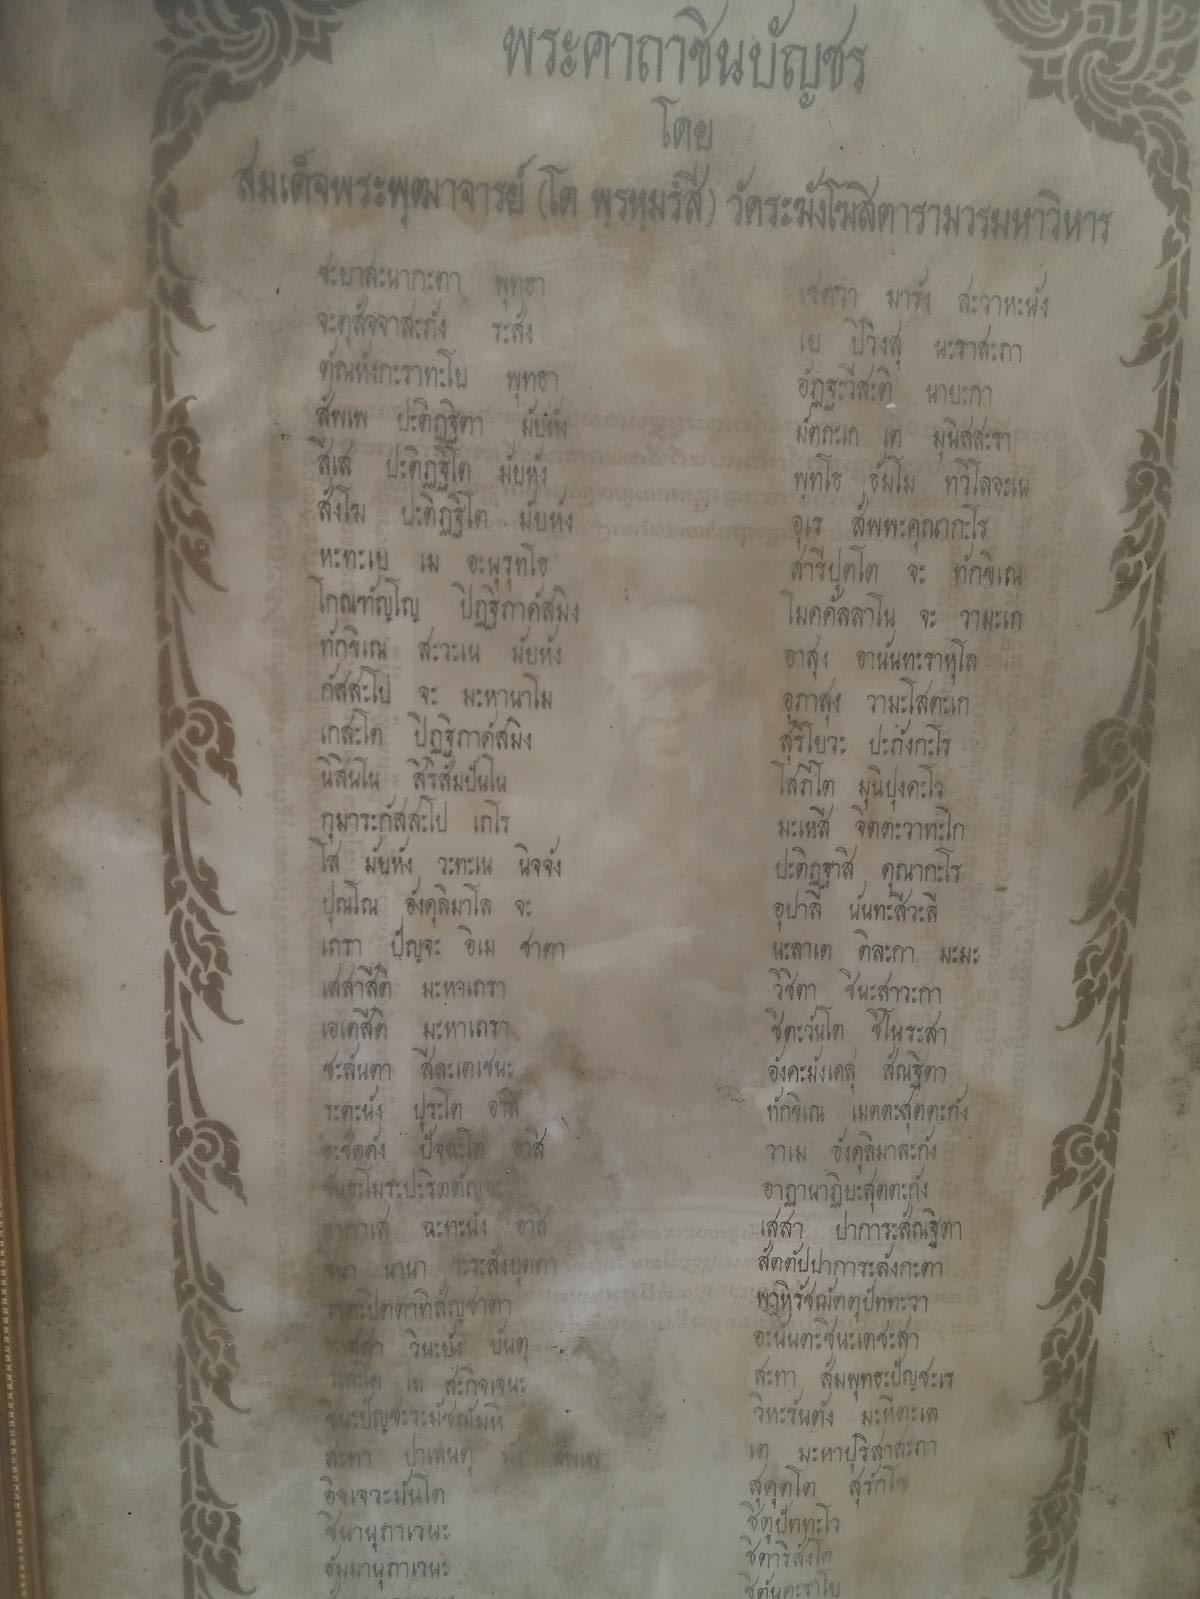 พระคาถาชินบัญชร
โดย
สมเด็จพระพุฒาจารย์ (โต พรหมรํสี) วัดระฆังโฆสิตารามวรมหาวิหาร
ชะยาสะนากะตา พุทธา เชตวา มารัง สะวาหะนัง
จะตุสัจจาสะภัง ระสัง เย ปิวิงสุ นะราสะภา
ตัณหังกะราทะโย พุทธา อัฏฐะวีสะติ นายะกา
สัพเพ ปะติฏฐิตา มัยหัง มัตถะเก เต มุนิสสะรา
สีเส ปะติฏฐิโต มัยหัง พุทโธ ธัมโม ทวิโลจะเน
สังโฆ ปะติฏฐิโต มัยหัง อุเร สัพพะคุณากะโร
หะทะเย เม อะนุรุทโธ สารีปุตโต จะ ทักขิเณ
โกณฑัญโญ ปิฏฐิภาคัสมิง โมคคัลลาโน จะ วามะเก
ทักขิเณ สะวะเน มัยหัง อาสุง อานันทะราหุโล
กัสสะโป จะ มะหานาโม อุภาสุง วามะโสตะเก
เกสะโต ปิฏฐิภาคัสมิง สุริโยวะ ปะภังกะโร
นิสินโน สิริสัมปันโน โสภิโต มุนิปุงคะโว
กุมาระกัสสะโป เถโร มะเหสี จิตตะวาทะโก
โส มัยหัง วะทะเน นิจจัง ปะติฏฐาสิ คุณากะโร
ปุณโณ อังคุลิมาโล จะ อุปาลี นันทะสีวะลี
เถรา ปัญจะ อิเม ชาตา นะลาเต ติละกา มะมะ
เสสาสีติ มะหาเถรา วิชิตา ชินะสาวะกา
เอเตสีติ มะหาเถรา ชิตะวันโต ชิโนระสา
ชะลันตา สีละเตเชนะ อังคะมังเคสุ สัณฐิตา
ระตะนัง ปุระโต อาสิ ทักขิเณ เมตตะสุตตะกัง
ธะชัคคัง ปัจฉะโต อาสิ วาเม อังคุลิมาละกัง
ขันธะโมระปะริตตัญจะ อาฏานาฏิยะสุตตะกัง
อากาเส ฉะทะนัง อาสิ เสสา ปาการะสัณฐิตา
ชินา นานา วะระสังยุตตา สัตตัปปาการะลังกะตา
วาตะปิตตาทิสัญชาตา พาหิรัชฌัตตุปัททะวา
อะเสสา วินะยัง ยันตุ อะนันตะชินะเตชะสา
วะสะโต เม สะกิจเจนะ สะทา สัมพุทธะปัญชะเร
ชินะปัญชะระมัชฌัมหิ วิหะรันตัง มะหีตะเล
สะทา ปาเลนตุ มัง สัพเพ เต มะหาปุริสาสะภา
อิจเจวะมันโต สุคุตโต สุรักโข
ชินานุภาเวนะ ชิตุปัททะโว
ธัมมานุภาเวนะ ชิตาริสังโค
ชิตันตะราโย